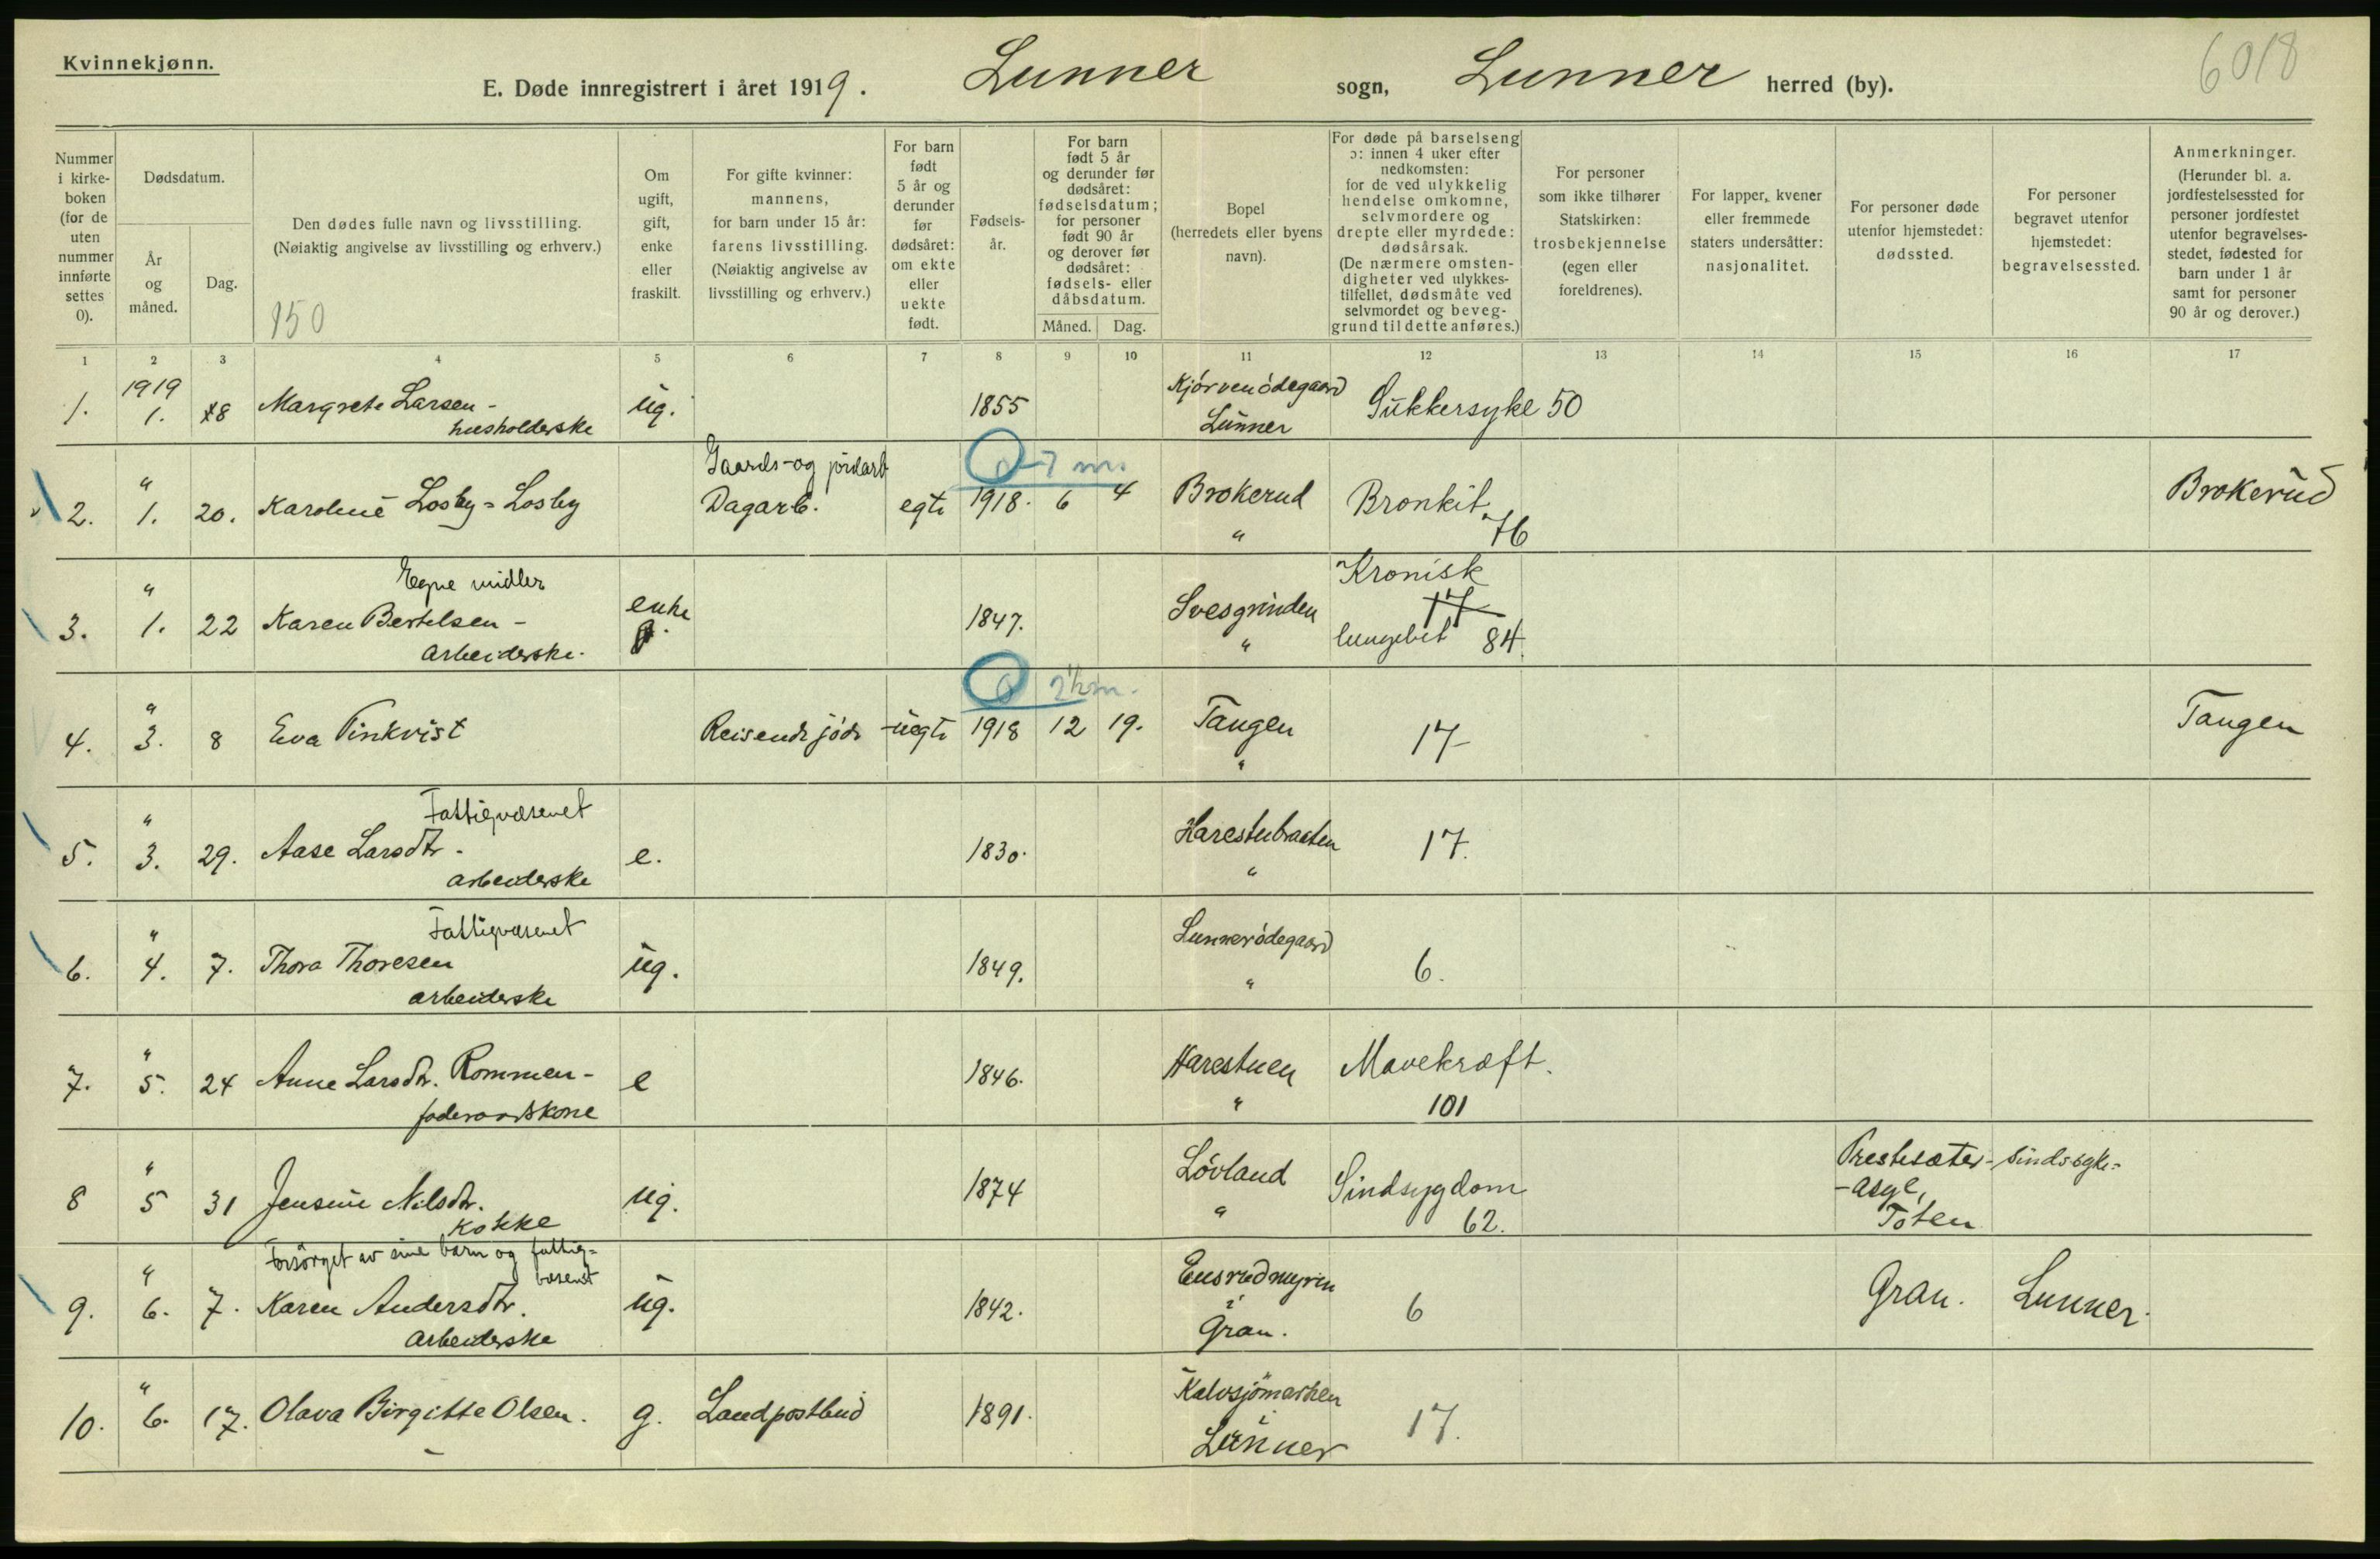 Kvinnekjønn.
E. Døde innregistrert i året 1919. Lunner sogn, Lunner herred (by).
6018
Nummer i kirke- boken (for de uten nummer innførte settes 0).
Dødsdatum.
År og måned.
Dag.
Den dødes fulle navn og livsstilling.
(Nøiaktig angivelse av livsstilling og erhverv.)
150
Om ugift, gift, enke eller fraskilt.
For gifte kvinner: mannens, for barn under 15 år: farens livsstilling. (Nøiaktig angivelse av livsstilling og erhverv.)
For barn født 5 år og derunder før dødsåret: om ekte eller uekte født.
Fødsels- år.
For barn født 5 år og derunder før dødsåret: fødselsdatum; for personer født 90 år og derover før dødsåret: fødsels- eller dåbsdatum.
Måned. Dag.
Bopel (herredets eller byens navn).
For døde på barselseng ɔ: innen 4 uker efter nedkomsten: for de ved ulykkelig hendelse omkomne, selvmordere og drepte eller myrdede: dødsårsak. (De nærmere omsten- digheter ved ulykkes- tilfellet, dødsmåte ved selvmordet og beveg- grund til dette anføres.)
For personer som ikke tilhører Statskirken: trosbekjennelse (egen eller foreldrenes).
For lapper, kvener eller fremmede staters undersåtter: nasjonalitet.
For personer døde utenfor hjemstedet: dødssted.
For personer begravet utenfor hjemstedet: begravelsessted.
Anmerkninger. (Herunder bl. a. jordfestelsessted for personer jordfestet utenfor begravelses- stedet, fødested for barn under 1 år samt for personer 90 år og derover.)
1 2 3 4 5 6 7 8 9 10 11 12 13 14 15 16 17
1919 Kjørvenødegaard
1. 1. 18 Margrete Larsen - ug. 1855 Sukkersyke 50
husholderske Lunner
Gaards- og jordarb 0 - 7 m.
2. " 1. 20. Karoline Losby = Losby Dagarb. egte 1918. 6 4 Brokerud Bronkit Brokerud
" 76
Egne midler Kronisk
3. " 1. 22 Karen Bertelsen - enke 1847. Svesgrinden 17
arbeiderske. " lungebet 84.
0 2½ m.
4. " 3. 8 Eva Finkvist Reisende jøde uegte 1918 12 19. Tangen 17 Tangen
"
Fattigvæsenet
5. " 3. 29. Aase Larsdtr. e. 1830. Harestubraaten 17.
arbeiderske "
Fattigvæsenet Lunnerødegaard
6. " 4. 7. Thora Thoresen ug. 1849. 6.
arbeiderske "
7. " 5. 24 Anne Larsdtr. Rommen - e 1846. Harestuen Mavekræft.
føderaadskone " 101
8 " 5 31 Jensine Nilsdtr. ug. 1874 Løvland Sindsygdom Prestesæter - sindssyke=
-asyl,
Kokke " 62. Toten
Forsørget av sine barn og fattig=
væsenet
9. " 6. 7. Karen Andersdtr. ug. 1842. Eusrudmyren 6 Gran. Lunner.
arbeiderske i Gran.
10. " 6. 17. Olava Birgitte Olsen. g. Landpostbud 1891. Kalvsjømarken 17.
i Lunner